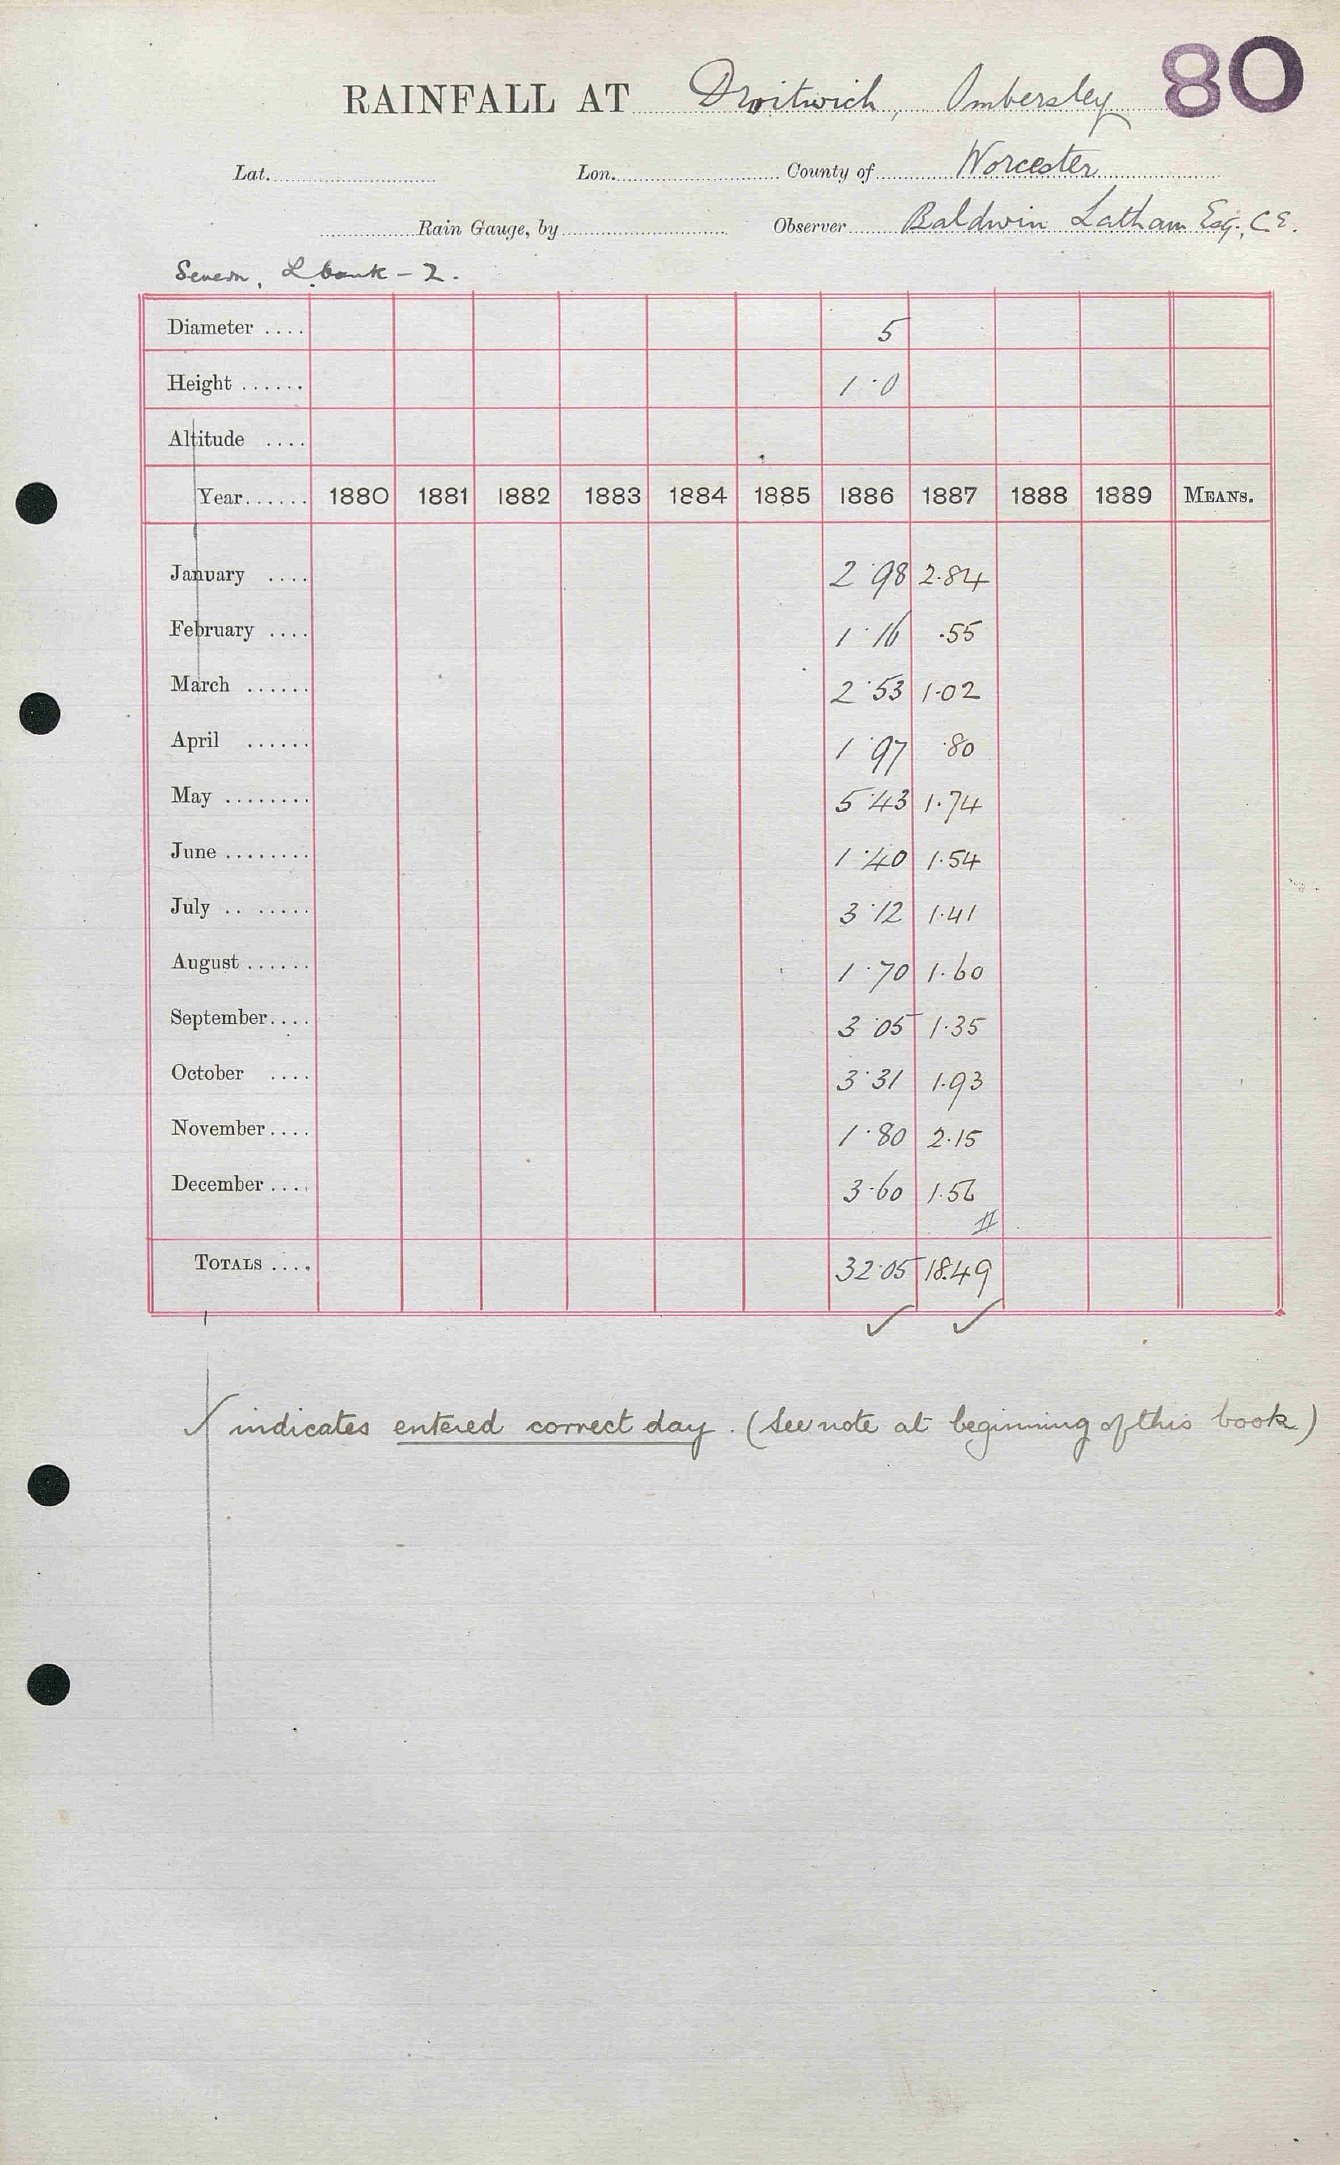 80
RAINFALL AT Droitwich, Ombersley
Lat. Lon. County of Worcester
Rain Gauge, by Observer Baldwin Latham Esq., C.E.
Severn, L. bank - 2.
Diameter .... 5
Height ...... 1·0
Altitude ....
Year...... 1880 1881 1882 1883 1884 1885 1886 1887 1888 1889 MEANS.
January .... 2·98 2·84
February .... 1·16 ·55
March ...... 2·53 1·02
April ...... 1·97 ·80
May ........ 5·43 1·74
June ........ 1·40 1·54
July .. ...... 3·12 1·41
August ...... 1·70 1·60
September.... 3·05 1·35
October .... 3·31 1·93
November.... 1·80 2·15
December .... 3·60 1·56
TOTALS .... 32·05 18·49
✓ ✓
✓ indicates entered correct day. (See note at beginning of this book)